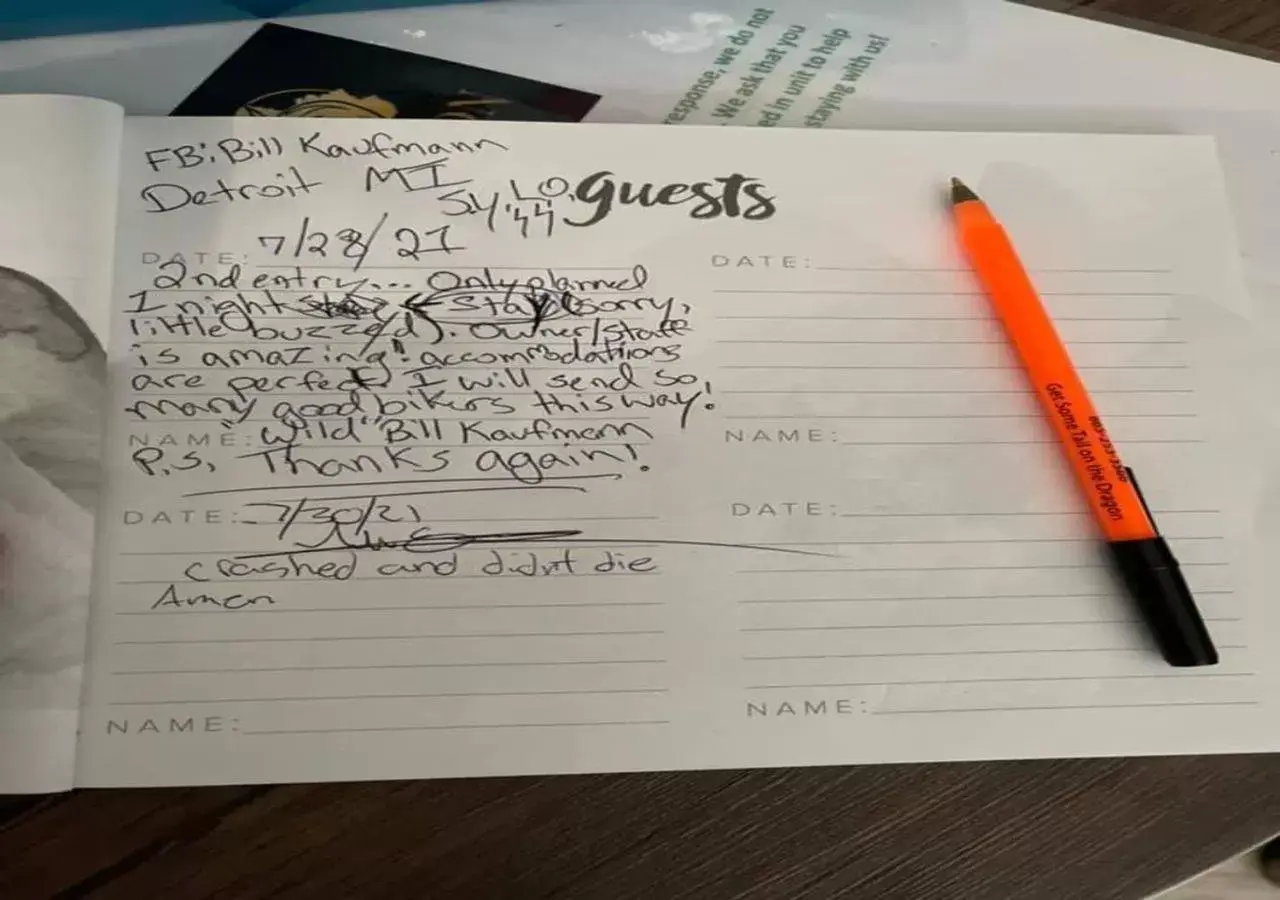 response, we do not
. We ask that you
ed in unit to help
staying with us!
FB: Bill Kaufmann
Detroit MI
guests
DATE: 7/28/21
2nd entry... Only planned
1 night ← Stay (sorry,
little buzzed). Owner/staff
is amazing! accommodations
are perfect I will send so
many good bikers this way!
NAME: "Wild" Bill Kaufmann
P.S. Thanks again!
DATE: 7/30/21
crashed and didn't die
Amen
NAME:
DATE:
NAME:
DATE:
NAME:
Get Some Tail on the Dragon